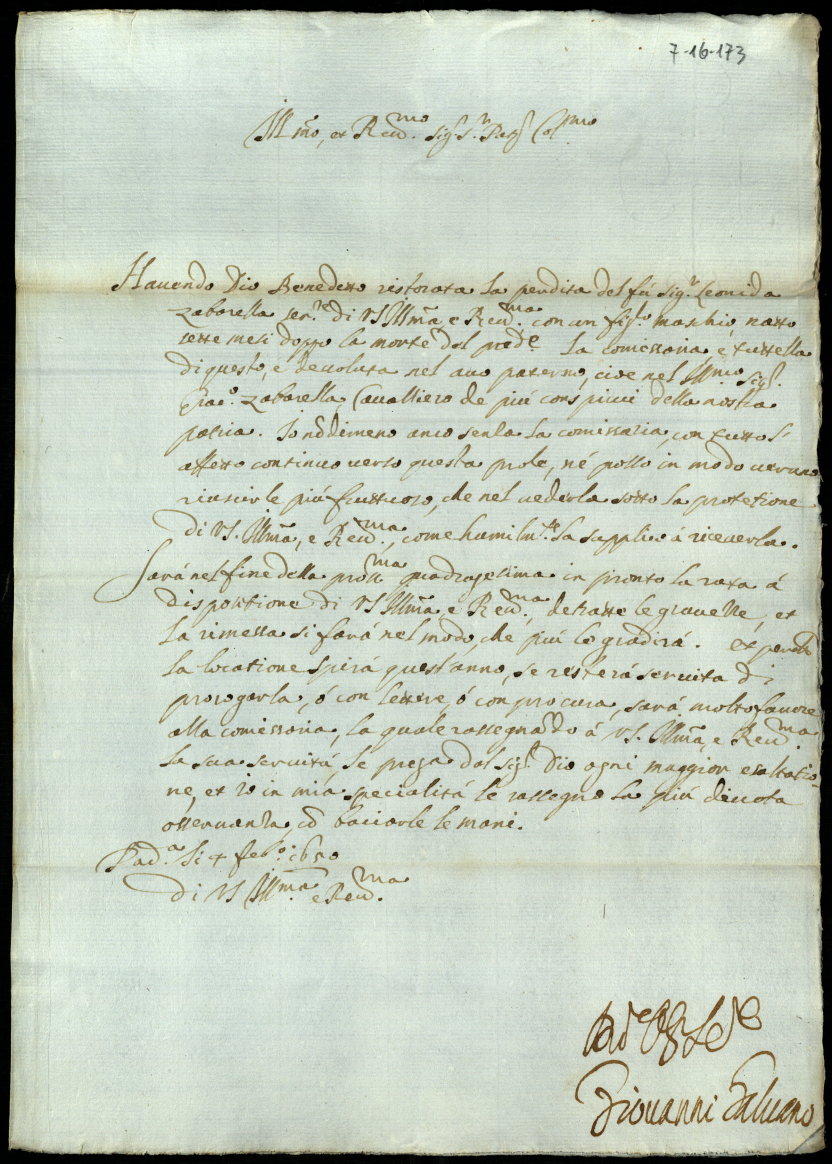 7-16-173
Ill.mo, et Reu.mo Sig.r S.r P.ron Col.mo
Hauendo Dio Benedetto ristorata la perdita del fú Sig.r Leonida
Zabarella ser.re di VS Ill.ma, e Reu.ma con un fig.lo maschio, natto
sette mesi doppo la morte del pred.o La comissaria, e tuttella
di questo, e deuoluta nel auo paterno, cioe nel Ill.mo Sig.r
Giac.o Zabarella, Caualliero de piú conspicui della nostra
patria. Io nõdimeno anco senza la comissaria, con tutto l'
affetto continuo uerso questa prole, né posso in modo ueruno
riuscirle piú fruttuoso, che nel uederla sotto la protetione
di VS. Ill.ma, e Reu.ma, come humilm.te la supplico á riceuerla.
Sará nel fine della pross.ma quadragesima in pronto la rata á
dispositione di VS Ill.ma e Reu.ma, detratte le grauezze, et
la rimessa si fará nel modo, che piú le gradirá. et perche
la locatione spira quest'anno, se resterá seruita di
prorogarla, ó con lettere, ó con procura, sará molto fauore
alla comissaria, la quale rassegnãdo á VS. Ill.ma, e Reu.ma
la sua seruitú, le prega dal Sig.r Dio ogni maggior esaltatio-
ne, et io in mia specialitá le rassegno la piú deuota
osseruanza, cõ baciarle le mani.
Pad.a li 4 feb.o 1650
di VS Ill.ma e Reu.ma
Giouanni Saluano